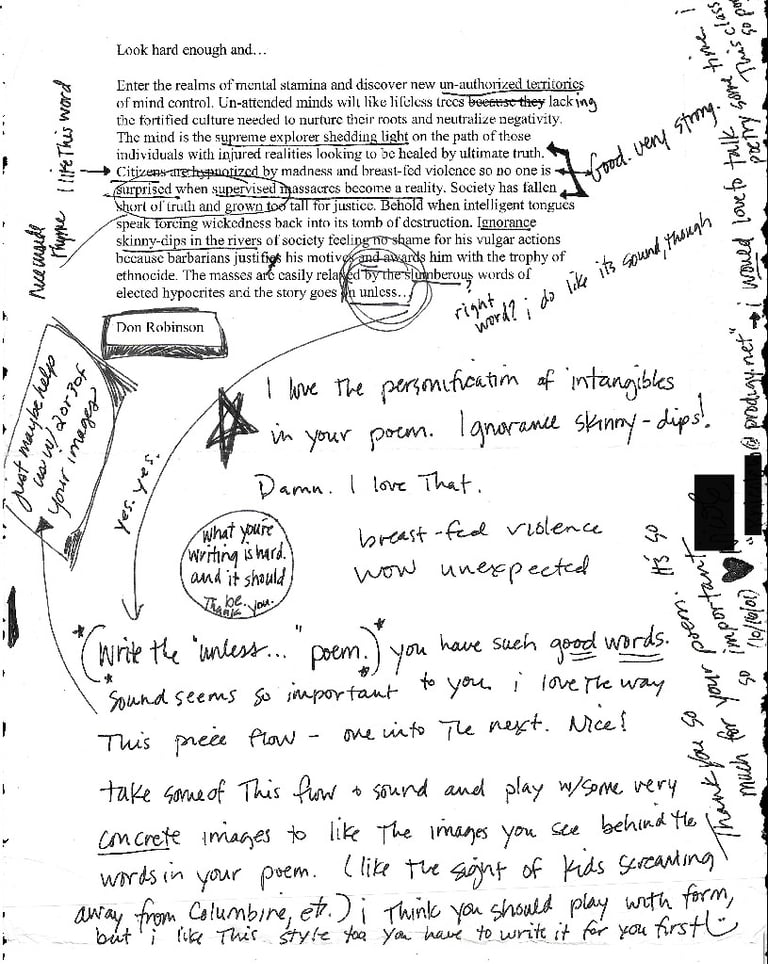 Look hard enough and…
Enter the realms of mental stamina and discover new un-authorized territories
of mind control. Un-attended minds wilt like lifeless trees because they lacking
the fortified culture needed to nurture their roots and neutralize negativity.
The mind is the supreme explorer shedding light on the path of those
individuals with injured realities looking to be healed by ultimate truth.
Citizens are hypnotized by madness and breast-fed violence so no one is
surprised when supervised massacres become a reality. Society has fallen
short of truth and grown too tall for justice. Behold when intelligent tongues
speak forcing wickedness back into its tomb of destruction. Ignorance
skinny-dips in the rivers of society feeling no shame for his vulgar actions
because barbarians justifies his motives and awards him with the trophy of
ethnocide. The masses are easily relaxed by the slumberous words of
elected hypocrites and the story goes on unless…
Don Robinson
I like This word
Nice inside
rhyme
Good. very strong.
right
word? i do like its sound, though
Just maybe help
us w/ 2 or 3 of
your images
yes. yes.
I love the personification of intangibles
in your poem. Ignorance skinny-dips!
Damn. I love That.
breast-fed violence
wow unexpected
What you're
writing is hard.
and it should
be.
Thank you.
*(Write the "unless..." poem.)* you have such good words.
*sound seems so important to you. i love The way
This piece flow - one into The next. Nice!
take some of This flow + sound and play w/some very
concrete images to like The images you see behind the
words in your poem. (like The sight of kids screaming
away from Columbine, etc.) i Think you should play with form,
but i like This style too you have to write it for you first
Thank you so
much for your poem. It's so
important
so important
(10/16/01)
@prodigy.net" → i would love to talk
poetry some time!
This class
so